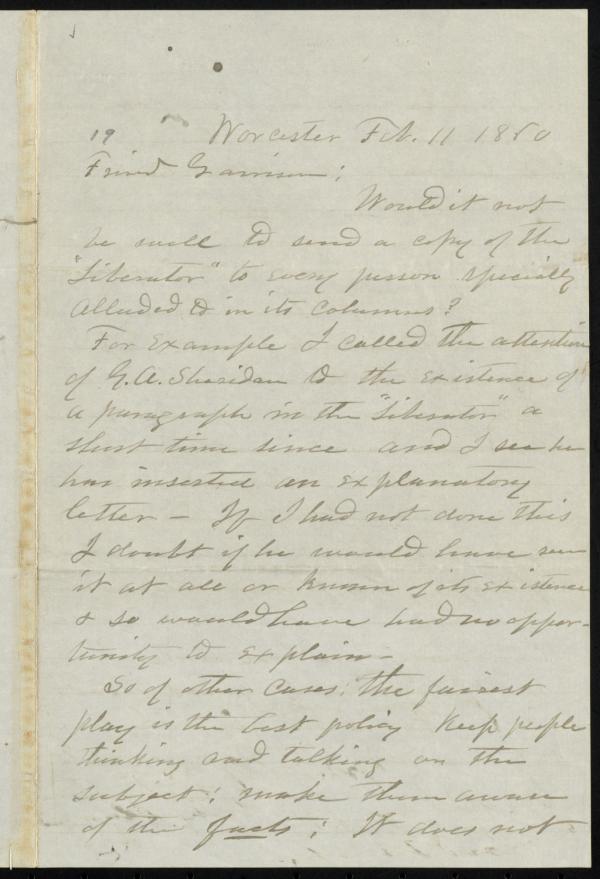 19 Worcester Feb. 11 1850
Friend Garrison;
Would it not
be well to send a copy of the
"Liberator" to every person specially
alluded to in its columns?
For Example I called the attention
of G.A. Sheridan to the existence of
a paragraph in the "Liberator" a
short time since and I see he
has inserted an explanatory
letter – If I had not done this
I doubt if he would have seen
it at all or known of its existence
& so would have had no oppor-
tunity to explain –
So of other cases; the fairest
play is the best policy Keep people
thinking and talking on the
subject; make them aware
of the facts; It does not